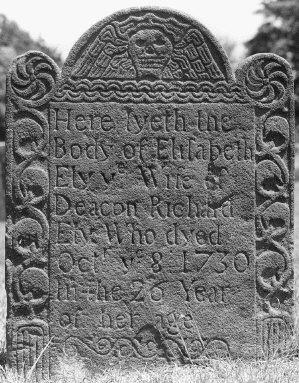 Here lyeth the
Body of Elilabeth
Ely yᵉ Wife of
Deacon Richard
Ely. Who dyed
Octʳ yᵉ 8 1730
In the 26 Year
of her age